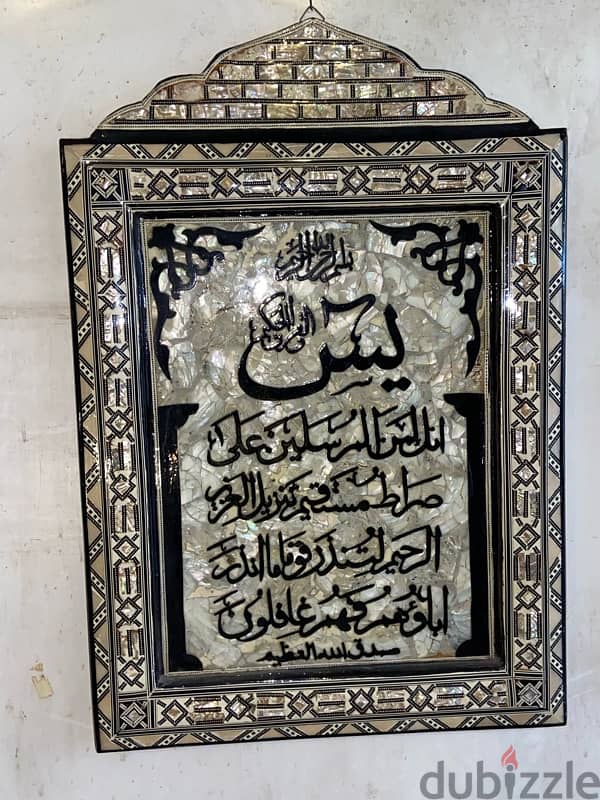 بسم الله الرحمن الرحيم
يس والقرآن الحكيم
انك لمن المرسلين على
صراط مستقيم تنزيل العزيز
الرحيم لتنذر قوما ما انذر
اباؤهم فهم غافلون
صدق الله العظيم
dubizzle